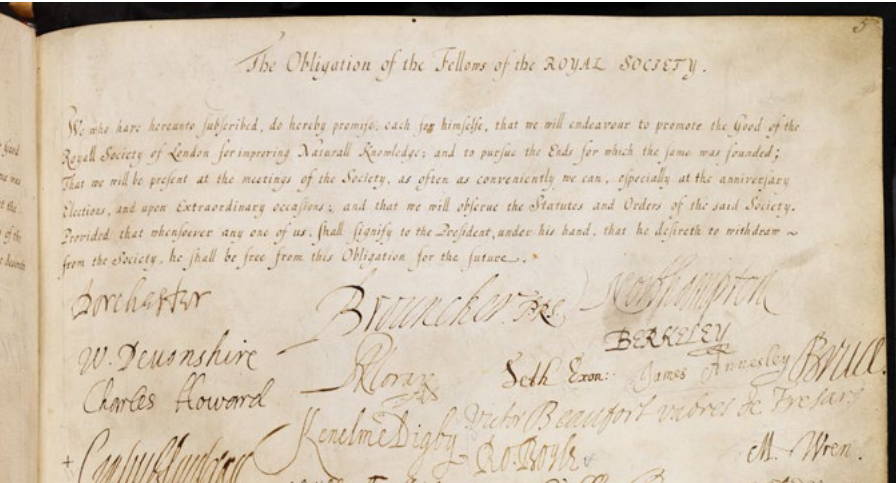 5
The Obligation of the Fellows of the ROYAL SOCIETY.
We who have hereunto subscribed, do hereby promise, each for himselfe, that we will endeavour to promote the Good of the
Royall Society of London for improving Naturall Knowledge; and to pursue the Ends for which the same was founded;
That we will be present at the meetings of the Society, as often as conveniently we can, especially at the anniversary
Elections, and upon Extraordinary occasions; and that we will observe the Statutes and Orders of the said Society.
Provided that whensoever any one of us, shall signify to the President, under his hand, that he desireth to withdraw ~
from the Society, he shall be free from this Obligation for the future.
Dorchester
Brouncker. PRS
Northampton
BERKELEY
W. Devonshire
Moray
Seth Exon:
James Annesley
Bruce.
Charles Howard
Kenelme Digby
Victor Beaufort
de Fresars
Ro. Boyle
M. Wren.